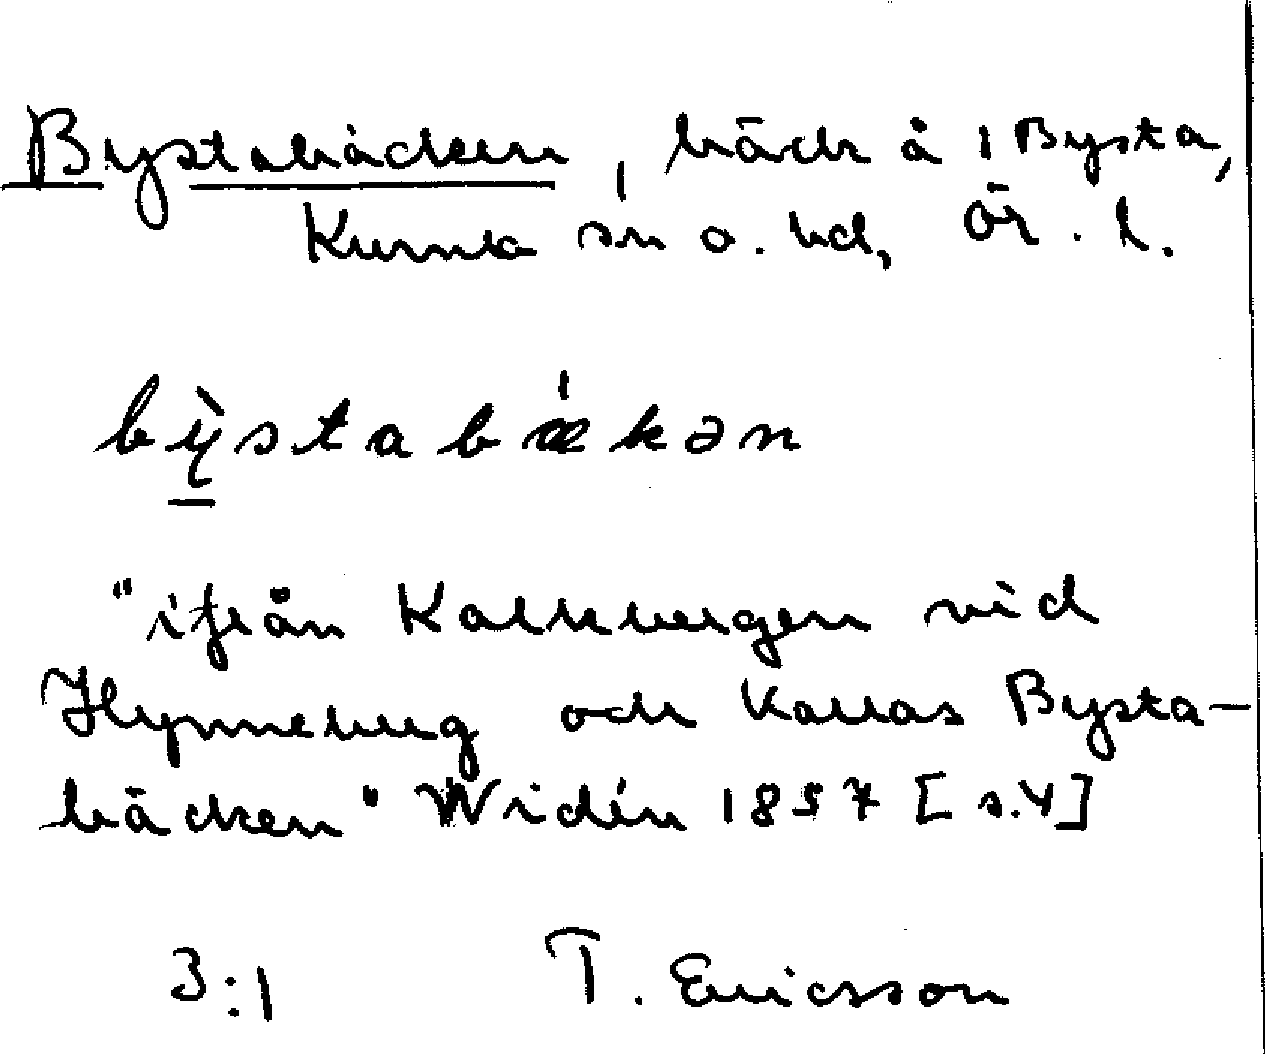 Bystabäcken, bäck å 1 Bysta,
Kumla sn o. hd, Ör. l.
bỳ̠stabǽkən
"ifrån Kalkbergen vid
Hynneberg och kallas Bysta-
bäcken" Widén 1857 [s.4]
3:1 T. Ericsson